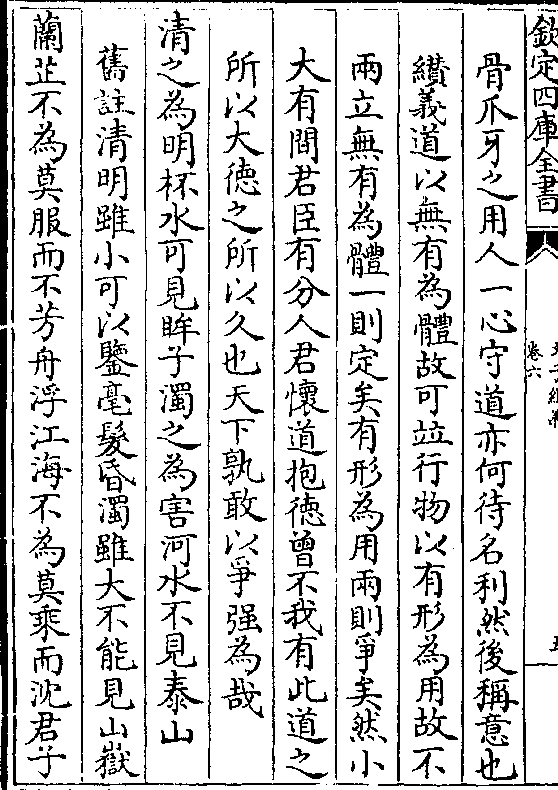 欽定四庫全書
卷六
骨爪牙之用人一心守道亦何待名利然後稱意也
纉義道以無有為體故可竝行物以有形為用故不
兩立無有為體一則定矣有形為用兩則爭矣然小
大有間君臣有分人君懐道抱徳曾不我有此道之
所以大徳之所以久也天下孰敢以爭强為哉
清之為明杯水可見眸子濁之為害河水不見泰山
舊註清明雖小可以鑒毫髮昏濁雖大不能見山嶽
蘭芷不為莫服而不芳舟浮江海不為莫乘而沈君子